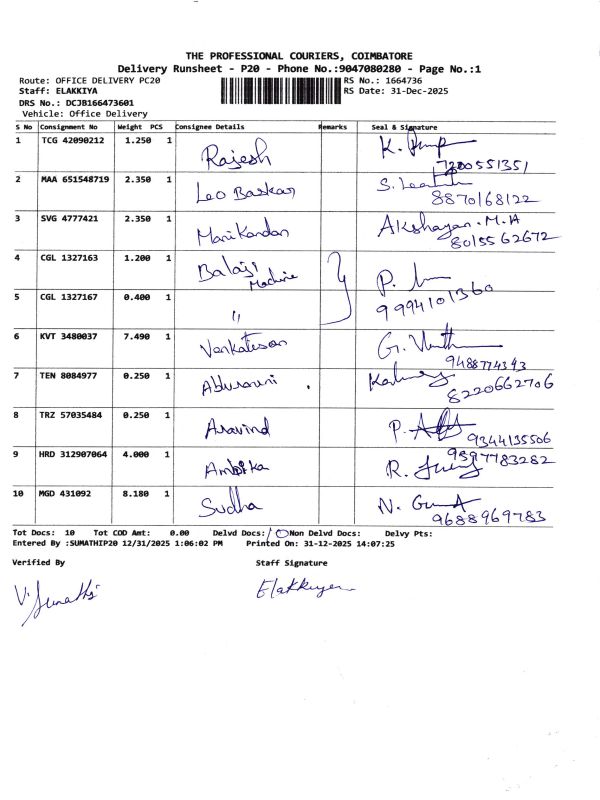 THE PROFESSIONAL COURIERS, COIMBATORE
Delivery Runsheet - P20 - Phone No.:9047080280 - Page No.:1
Route: OFFICE DELIVERY PC20 RS No.: 1664736
Staff: ELAKKIYA RS Date: 31-Dec-2025
DRS No.: DCJB166473601
Vehicle: Office Delivery
S No Consignment No Weight PCS Consignee Details Remarks Seal & Signature
1 TCG 42090212 1.250 1 Rajesh K.
7200551351
2 MAA 651548719 2.350 1 Leo Baskar S.
8870168122
3 SVG 4777421 2.350 1 Manikandan Akshayan. M.A
8015562672
4 CGL 1327163 1.200 1 Balaji Machine P.
5 CGL 1327167 0.400 1 " 9994101360
6 KVT 3480037 7.490 1 Venkatesan G.
9488774343
7 TEN 8084977 0.250 1
8220662706
8 TRZ 57035484 0.250 1 Aravind P.
9344135506
9 HRD 312907064 4.000 1 Ambika R.
9597783282
10 MGD 431092 8.180 1 Sudha N.
9688969783
Tot Docs: 10 Tot COD Amt: 0.00 Delvd Docs:10 Non Delvd Docs: Delvy Pts:
Entered By :SUMATHIP20 12/31/2025 1:06:02 PM Printed On: 31-12-2025 14:07:25
Verified By Staff Signature
V. Sumathi Elakkiya